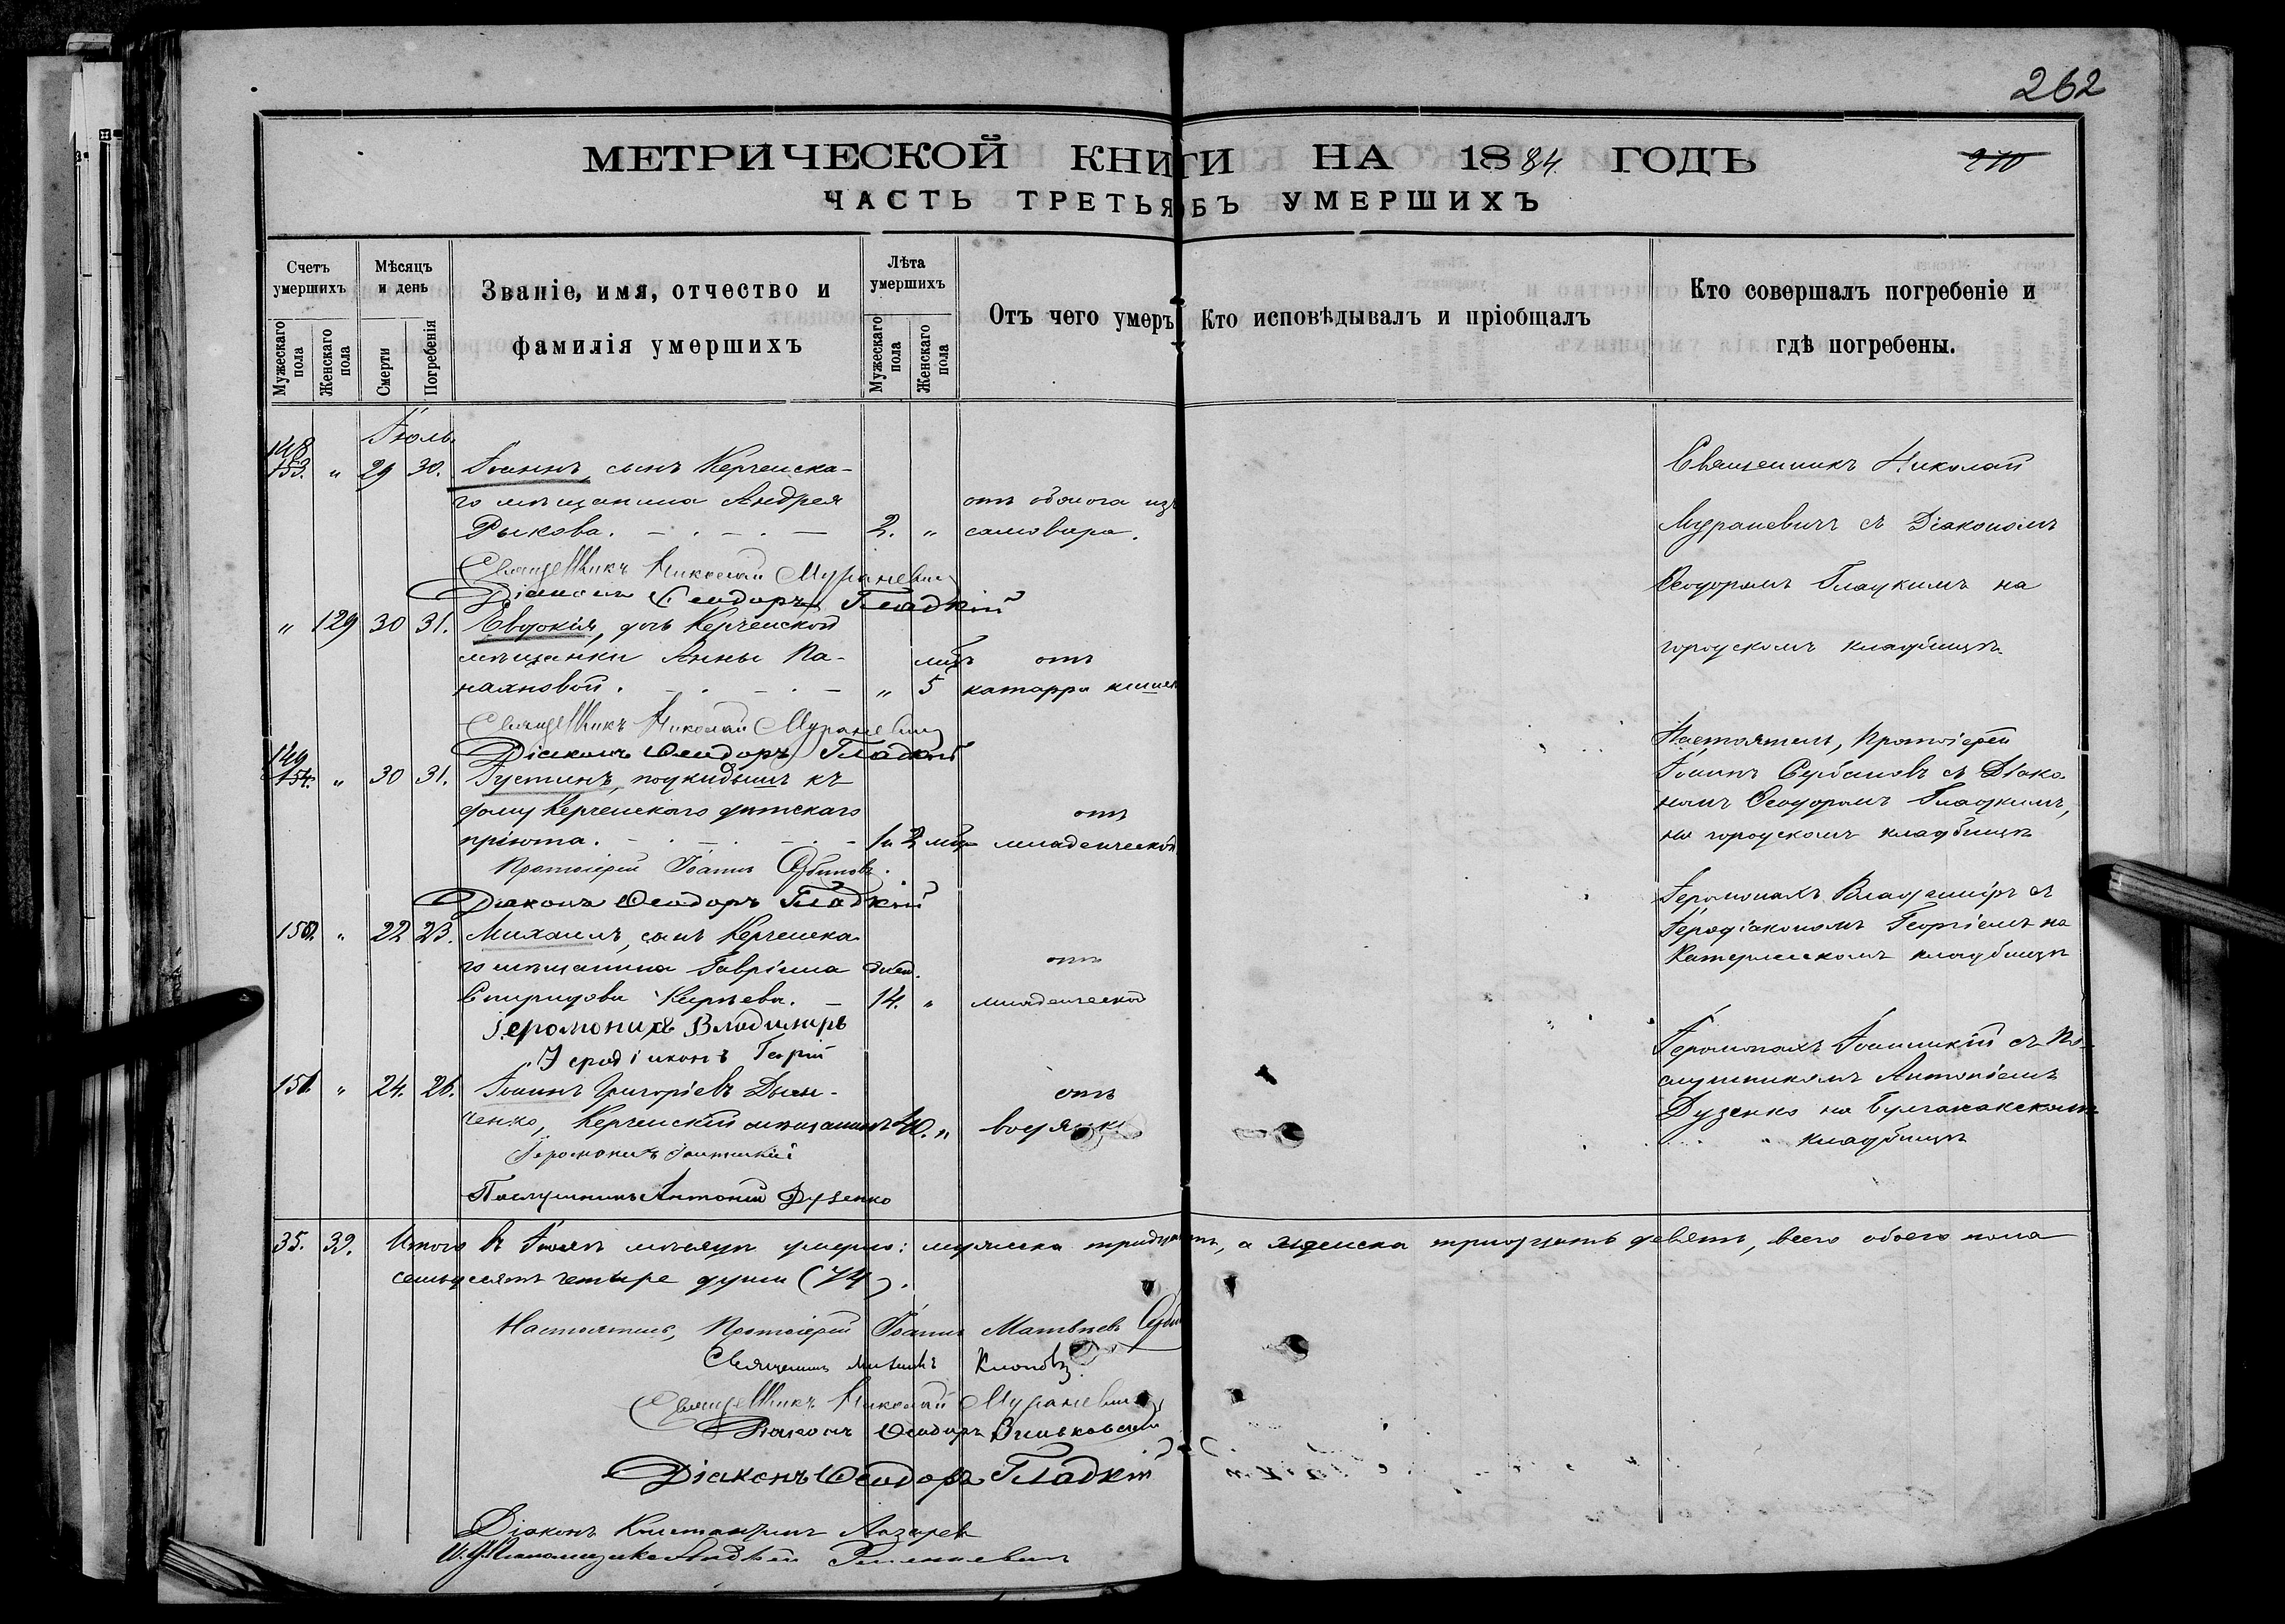 262
МЕТРИЧЕСКОЙ КНИГИ НА 1884. ГОДЪ
210
ЧАСТЬ ТРЕТЬЯ ОБЪ УМЕРШИХЪ
Счетъ умершихъ
Мужескаго пола
Женскаго пола
Мѣсяцъ и день
Смерти
Погребенія
Званіе, имя, отчество и
фамилія умершихъ
Лѣта умершихъ
Мужескаго пола
Женскаго пола
Отъ чего умеръ
Кто исповѣдывалъ и пріобщалъ
Кто совершалъ погребеніе и
гдѣ погребены.
Іюль.
148
153. " 29 30. Іоаннъ, сынъ Керченска-
го мѣщанина Андрея отъ ожога изъ
Рыкова. 2. " самовара.
Священникъ Николай Мураневич
Діаконъ Ѳеодоръ Гладкій
Священникъ Николай
Мураневичъ съ Діакономъ
Ѳеодоромъ Гладкимъ на
городскомъ кладбищѣ.
" 129 30 31. Евдокія, дочь Керченской
мѣщанки Анны Па- мѣц. отъ
нахновой. " 5 катарра кишек
Священникъ Николай Мураневич
Діаконъ Ѳеодоръ Гладкій
149
154. " 30 31. Іустинъ, подкидышъ къ
дому Керченскаго дѣтскаго отъ
пріюта. 1 1/2 мѣц младенческой
Протоіерей Іоаннъ Сербиновъ.
Діаконъ Ѳеодоръ Гладкій
Настоятель, Протоіерей
Іоаннъ Сербиновъ съ Діако-
номъ Ѳеодоромъ Гладкимъ,
на городскомъ кладбищѣ
150. " 22 23. Михаилъ, сынъ Керченска
го мѣщанина Гавріила дней. отъ
Спиридова Кирѣева. 14. " младенческой
Іеромонахъ Владимиръ
Іеродіаконъ Георгій
Іеромонахъ Владиміръ съ
Іеродіакономъ Георгіемъ на
Катерлезскомъ кладбищѣ
151. " 24. 26. Іоаннъ Григоріевъ Дьян- отъ
ченко, Керченскій мѣщанинъ 40. " водянки
Іеромонахъ Іоанникій
Послушникъ Антоній Дузенко
Іеромонахъ Іоанникій съ По-
слушникомъ Антоніемъ
Дузенко на Булганакскомъ
кладбищѣ
35. 39. Итого въ Іюлѣ мѣсяцѣ умерло: мужеска тридцать, а женска тридцать девять, всего обоего пола
семьдесятъ четыре души (74).
Настоятель, Протоіерей Іоаннъ Матвѣевъ Серби
Священникъ Клоповъ
Священникъ Николай Мураневич
Діаконъ Ѳеодоръ Зеньковскій
Діаконъ Ѳеодоръ Гладкій
Діаконъ Константинъ Лазарев
И. д. Псаломщика Андрей